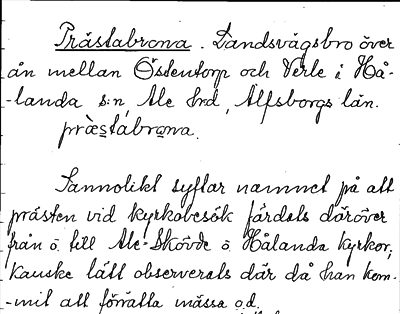 Prästabrona. Landsvägsbro över
ån mellan Östentorp och Verle i Hå-
-landa s:n, Ale hrd, Älfsborgs län.
præstábrωna.
Sannolikt syftar namnet på att
prästen vid kyrkobesök färdats däröver
från ö. till Ale-Skövde o Hålanda kyrkor,
kanske lätt observerats där då han kom-
-mit att förrätta mässa o.d.